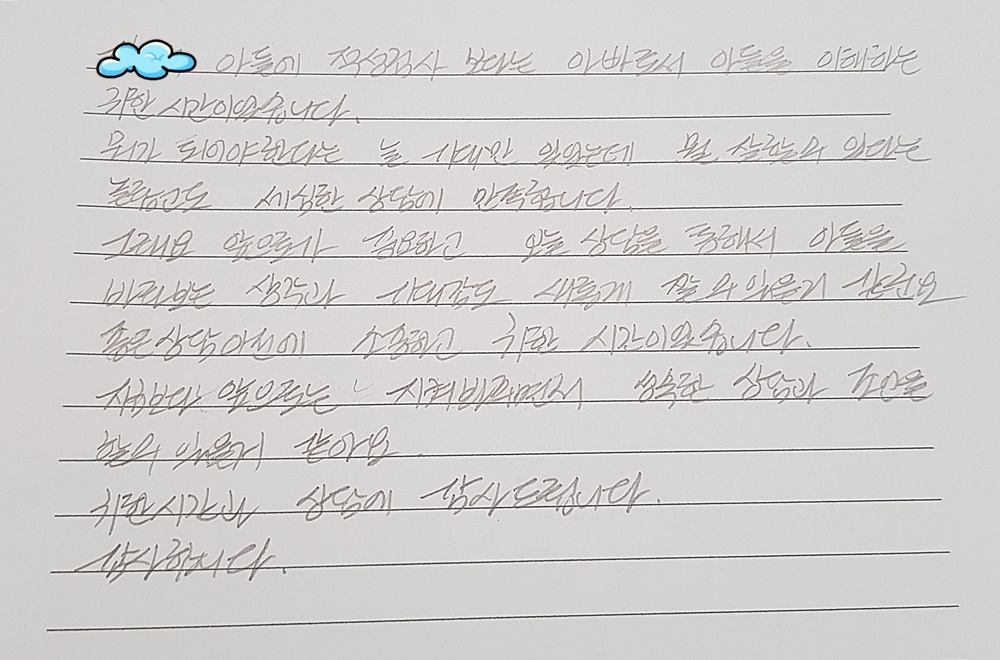 아들에 적성검사 보다는 아빠로서 아들을 이해하는
귀한 시간이었습니다.
뭐가 되어야 한다는 늘 기대만 있었는데 뭘 잘할수 있다는
놀랍고도 세심한 상담에 만족합니다.
그래요 앞으로가 중요하고 오늘 상담을 통해서 아들을
바라보는 생각과 기대감도 새롭게 할수 있을거 같군요
좋은 상담 소중하고 귀한 시간이었습니다.
앞으로는 지켜바라보면서 상담과 조언을
할수 있을거 같아요.
귀한시간과 상담에 감사드립니다.
감사합니다.